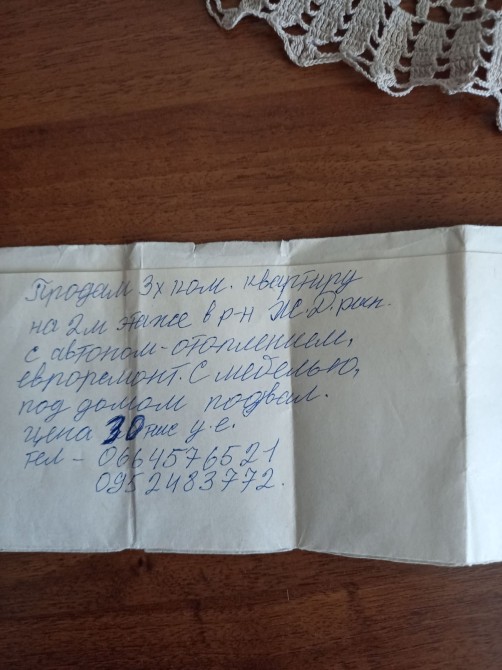 Продам 3х ком. квартиру
на 2м этаже в р-н Ж.Д. рын.
с автоном-отоплением,
евроремонт. С мебелью,
под домом подвал.
цена 30 тыс у.е.
тел - 0664576521
0952483772.